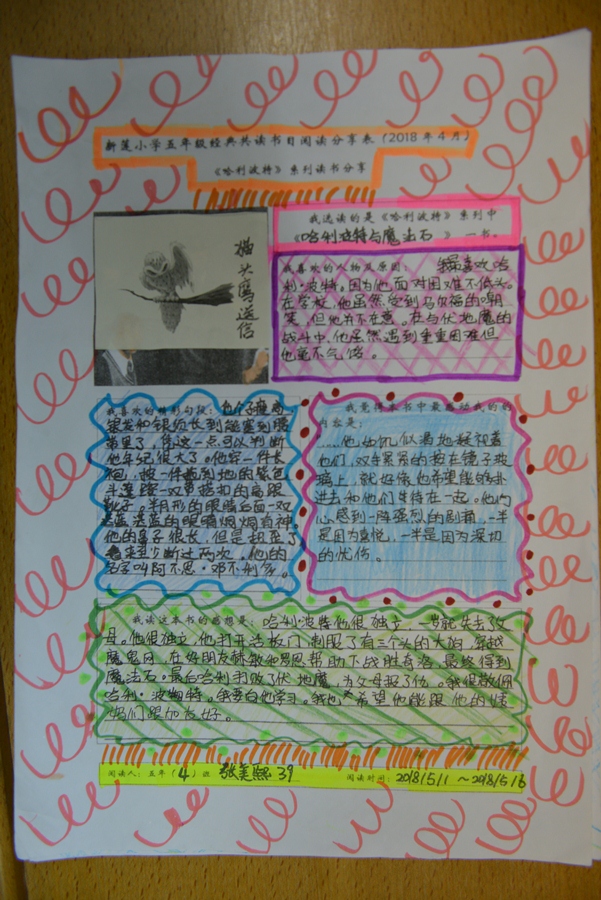 新莲小学五年级经典共读书目阅读分享表（2018年4月）
《哈利波特》系列读书分享
猫头鹰送信
我选读的是《哈利波特》系列中
《哈利波特与魔法石》一书。
我喜欢的人物及原因：我最喜欢哈
利·波特。因为他面对困难不低头。
在学校，他虽然受到马尔福的嘲
笑，但他并不在意。在与伏地魔的
战斗中，他虽然遇到重重困难但
他毫不气馁。
我喜欢的精彩句段：他个子瘦高
银发和银须长到能塞到腰
带里了，凭这一点可以判断
他年纪很大了。他穿一件长
袍，披一件拖到地的紫色
斗篷，蹬一双带搭扣的高跟
靴子。半月形的眼镜后面一双
湛蓝湛蓝的眼睛炯炯有神。
他的鼻子很长，但是扭歪了
看来至少断过两次，他的
名字叫阿不思·邓不利多。
我觉得本书中最感动我的的
内容是：
……他如饥似渴地凝视着
他们，双手紧紧的按在镜子玻
璃上，就好像他希望能够扑
进去和他们生待在一起。他内
心感到一阵强烈的剧痛，一半
是因为喜悦，一半是因为深切
的忧伤。
我读这本书的感想是：哈利·波特他很独立，一岁就失去了父
母。他很独立，他打开活板门，制服了有三个头的大狗，穿越
魔鬼网，在好朋友赫敏和罗恩帮助下战胜奇洛，最终得到
魔法石。最后哈利打败了伏地魔，为父母报了仇。我很敬佩
哈利·波特。我要向他学习。我也希望他能跟他的
妈们更加友好。
阅读人：五年（4）班 张美熙 39 阅读时间：2018/5/11 ～2018/5/16